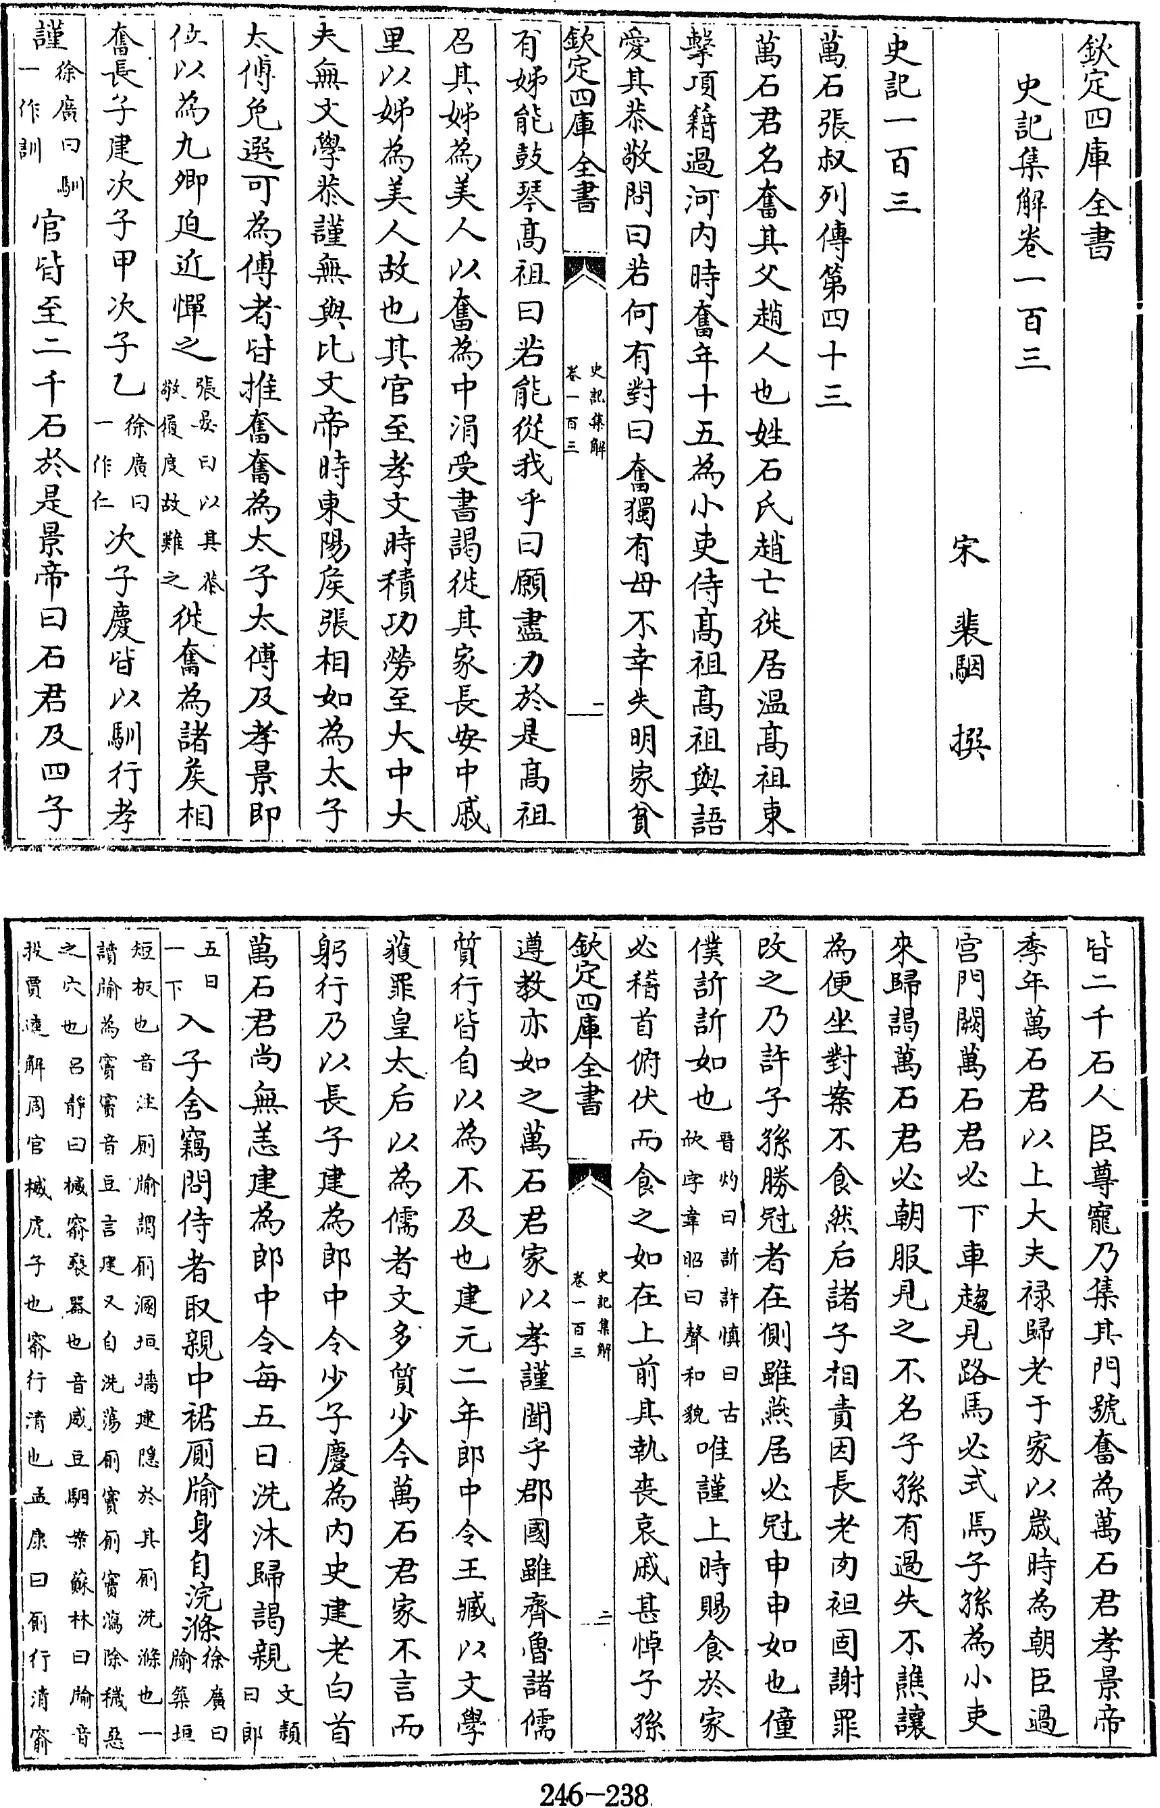 欽定四庫全書
史記集解卷一百三
宋 裴駰 撰
史記一百三
萬石張叔列傳第四十三
萬石君名奮其父趙人也姓石氏趙亡徙居温高祖東
擊項籍過河内時奮年十五為小吏侍高祖高祖與語
愛其恭敬問曰若何有對曰奮獨有母不幸失明家貧
欽定四庫全書 史記集解 卷一百三 一
有姊能鼓琴高祖曰若能從我乎曰願盡力於是高祖
召其姊為美人以奮為中涓受書謁徙其家長安中戚
里以姊為美人故也其官至孝文時積功勞至大中大
夫無文學恭謹無與比文帝時東陽矦張相如為太子
太傅免選可為傅者皆推奮奮為太子太傅及孝景即
位以為九卿迫近憚之張晏曰以其恭敬履度故難之徙奮為諸矦相
奮長子建次子甲次子乙徐廣曰一作仁次子慶皆以馴行孝
謹徐廣曰馴一作訓官皆至二千石於是景帝曰石君及四子
皆二千石人臣尊寵乃集其門號奮為萬石君孝景帝
季年萬石君以上大夫禄歸老于家以歲時為朝臣過
宫門闕萬石君必下車趨見路馬必式焉子孫為小吏
來歸謁萬石君必朝服見之不名子孫有過失不譙讓
為便坐對案不食然后諸子相責因長老肉袒固謝罪
改之乃許子孫勝冠者在側雖燕居必冠申申如也僮
僕訢訢如也晉灼曰訢許慎曰古欣字韋昭曰聲和貌唯謹上時賜食於家
必稽首俯伏而食之如在上前其執喪哀戚甚悼子孫
欽定四庫全書 史記集解 卷一百三 二
遵教亦如之萬石君家以孝謹聞乎郡國雖齊魯諸儒
質行皆自以為不及也建元二年郎中令王臧以文學
獲罪皇太后以為儒者文多質少今萬石君家不言而
躬行乃以長子建為郎中令少子慶為内史建老白首
萬石君尚無恙建為郎中令每五日洗沐歸謁親文頴曰郎
五日一下入子舍竊問侍者取親中裙厠牏身自浣滌徐廣曰牏築垣
短板也音注厠牏謂厠溷垣墻建隱於其厠洗滌也一
讀牏為竇竇音豆言建又自洗蕩厠竇厠竇瀉除穢惡
之穴也吕静曰楲窬褻器也音威豆駰案蘇林曰牏音
投賈逵解周官楲虎子也窬行清也孟康曰厠行清窬
246-238